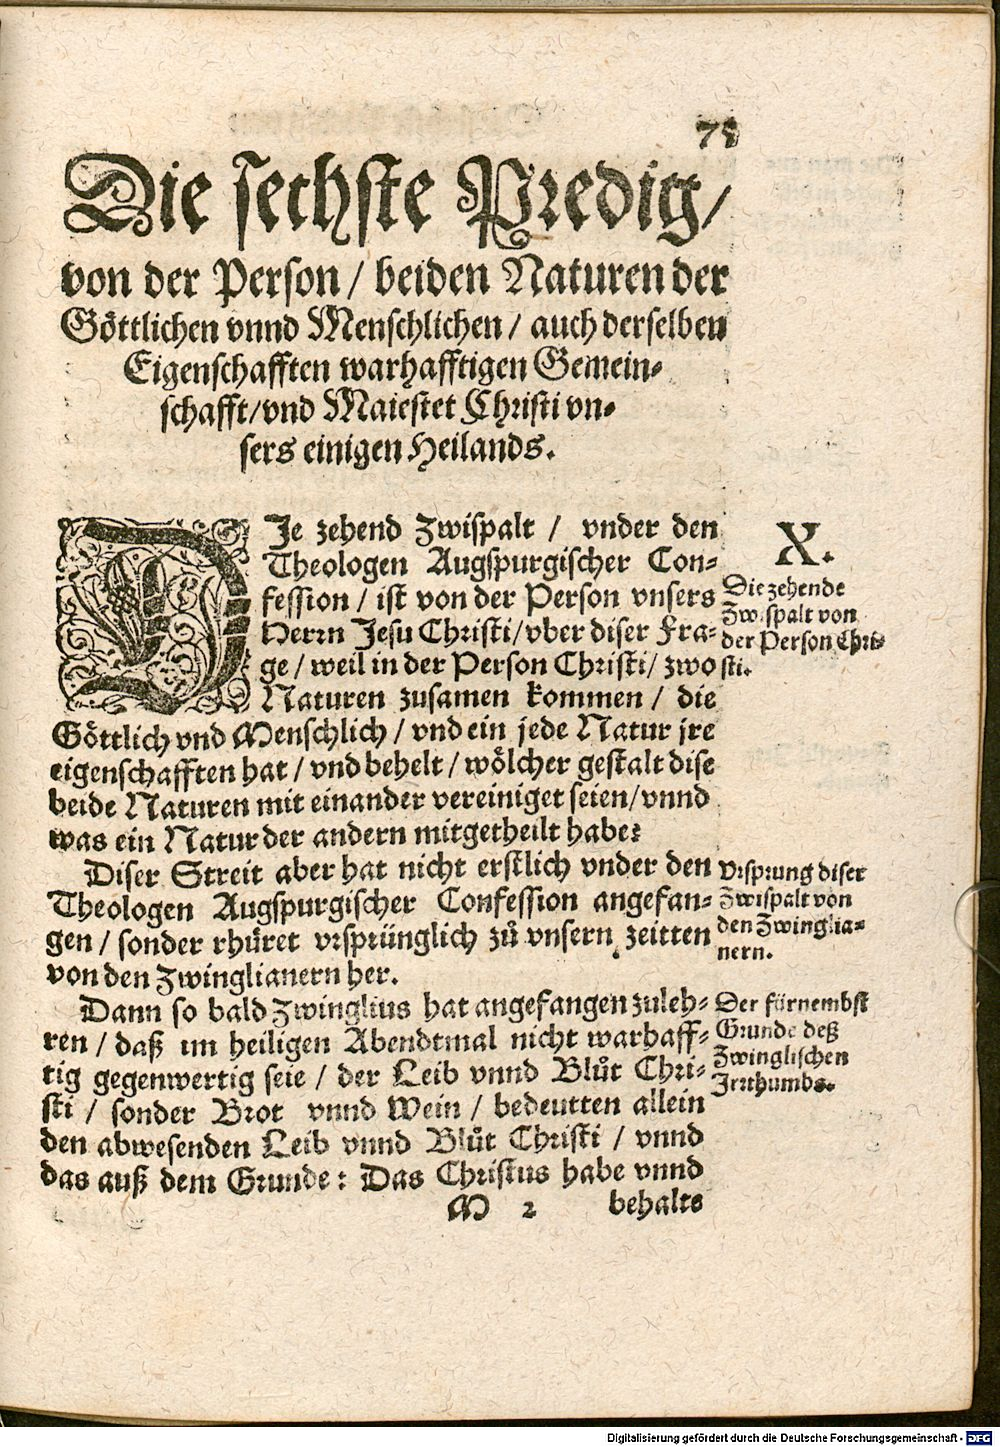 Die sechste Predig/
von der Person / beiden Naturen der
Göttlichen vnnd Menschlichen / auch derselben
Eigenschafften warhafftigen Gemein-
schafft/vnd Maiestet Christi vn-
sers einigen Heilands.
DJe zehend Zwispalt / vnder den
Theologen Augspurgischer Con-
fession / ist von der Person vnsers
Herrn Jesu Christi/vber diser Fra-
ge / weil in der Person Christi/ zwo
Naturen zusamen kommen / die
Göttlich vnd Menschlich / vnd ein jede Natur jre
eigenschafften hat / vnd behelt / wölcher gestalt dise
beide Naturen mit einander vereiniget seien/vnnd
was ein Natur der andern mitgetheilt habe?
X.
Die zehende
Zwispalt von
der Person Chri-
sti.
Diser Streit aber hat nicht erstlich vnder den
Theologen Augspurgischer Confession angefan-
gen / sonder rhüret vrsprünglich zů vnsern zeitten
von den Zwinglianern her.
Vrsprung diser
Zwispalt von
den Zwinglia-
nern.
Dann so bald Zwinglius hat angefangen zuleh-
ren / daß im heiligen Abendtmal nicht warhaff-
tig gegenwertig seie / der Leib vnnd Blůt Chri-
sti / sonder Brot vnnd Wein / bedeutten allein
den abwesenden Leib vnnd Blůt Christi / vnnd
das auß dem Grunde: Das Christus habe vnnd
Der fürnembst
Grunde deß
Zwinglischen
Jrrthumbs.
M 2 behalts
Digitalisierung gefördert durch die Deutsche Forschungsgemeinschaft - DFG